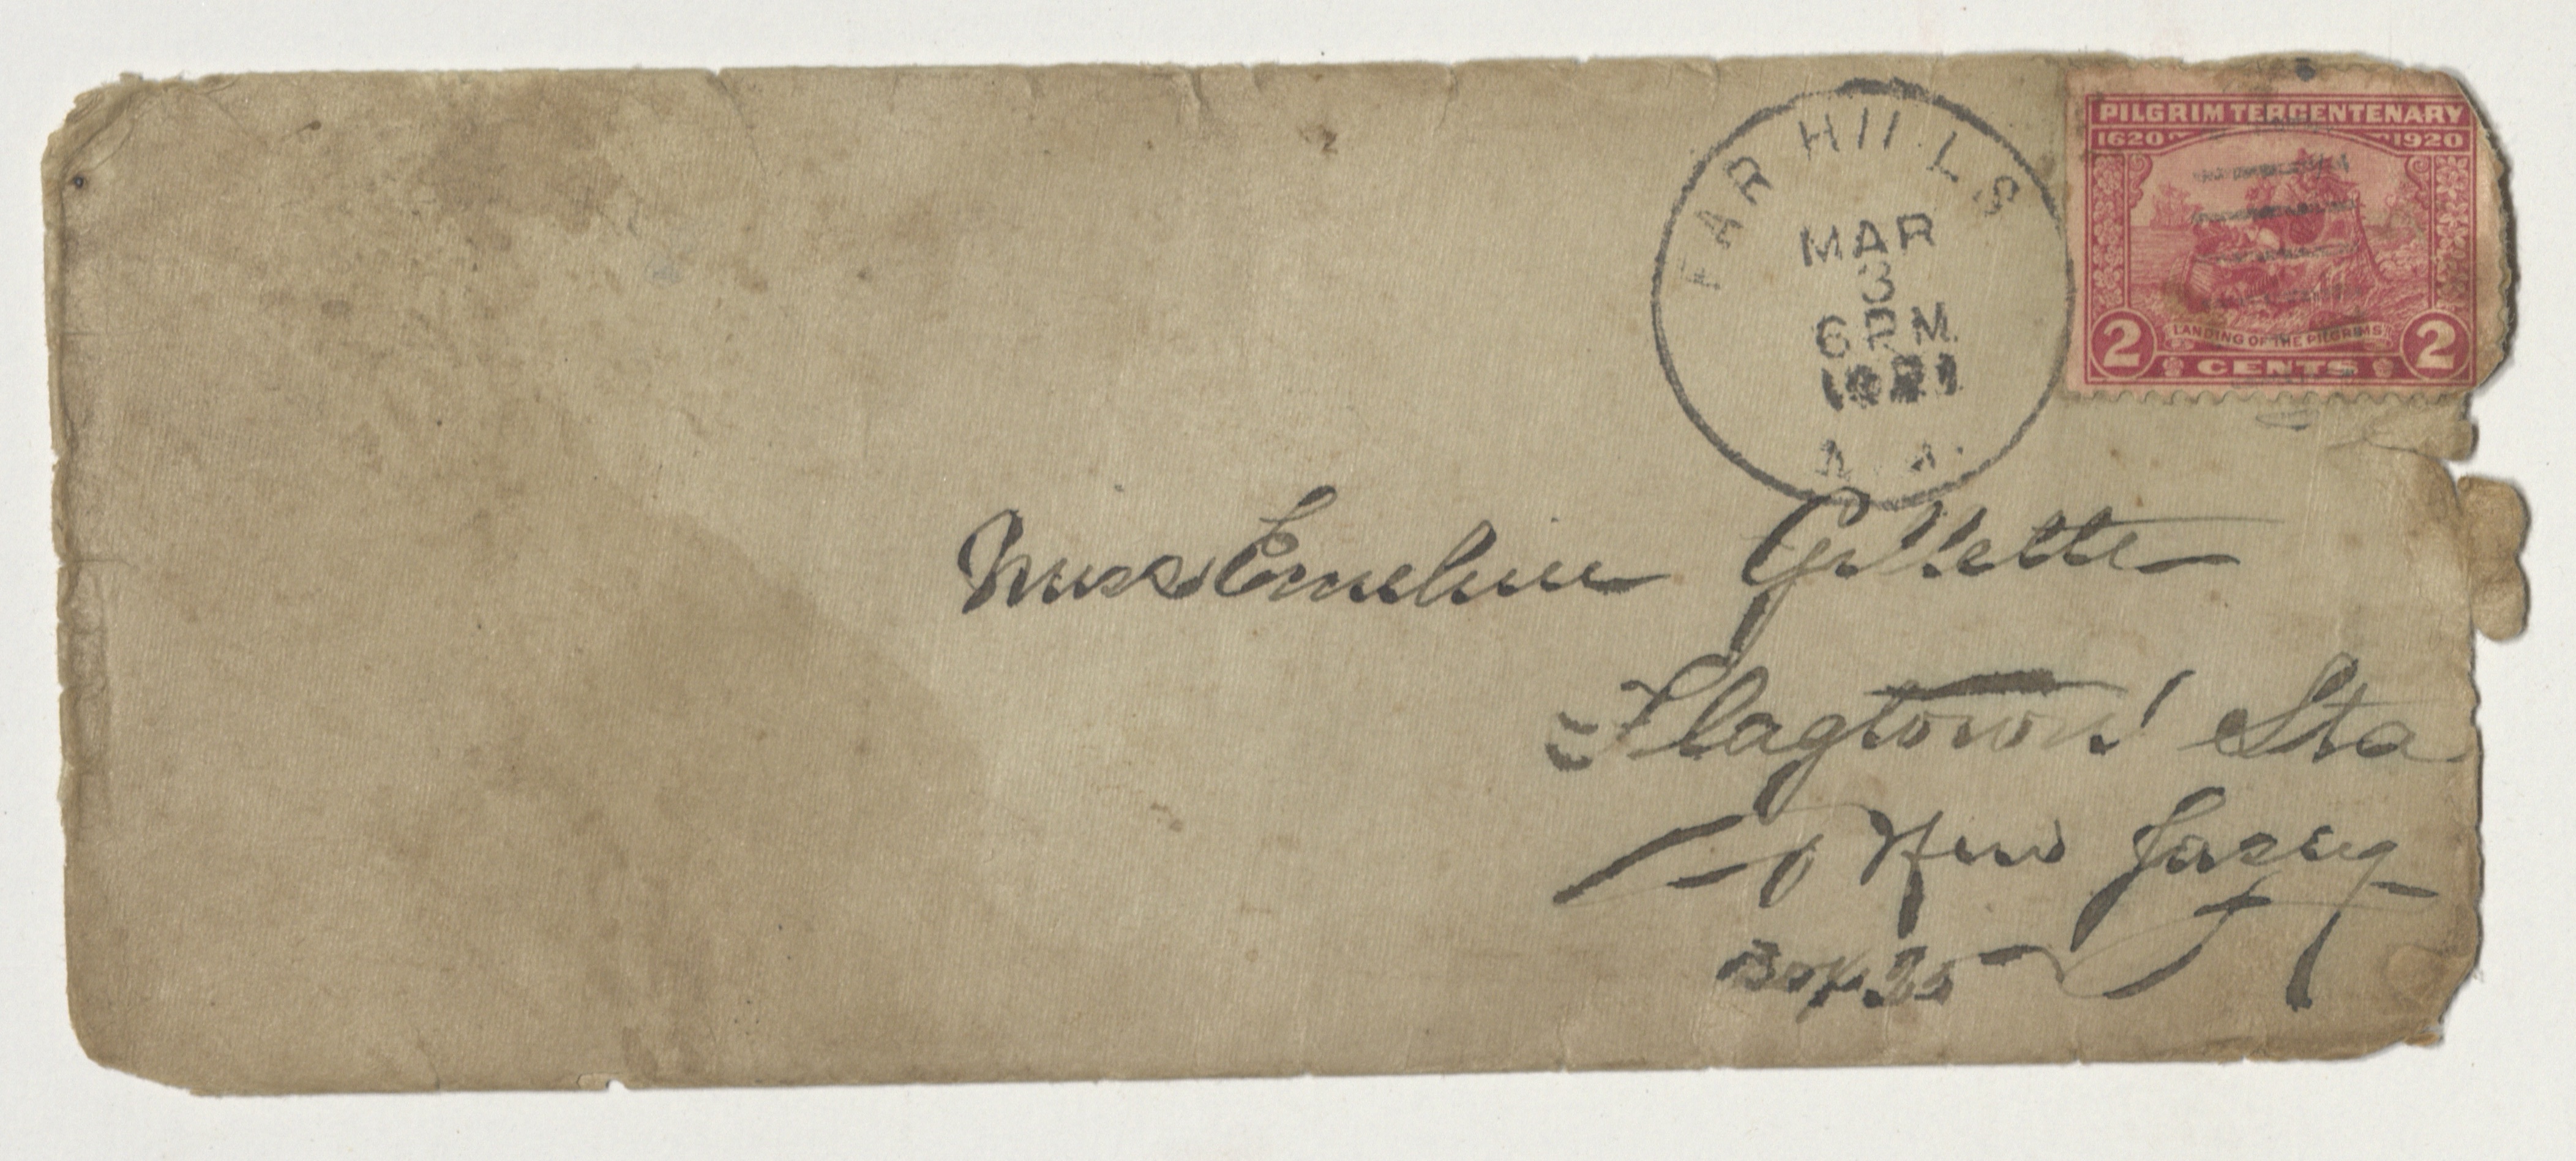 FAR HILLS
MAR
3
6 PM
1921
N. J.
PILGRIM TERCENTENARY
1620 1920
LANDING OF THE PILGRIMS
2 CENTS 2
Miss Emeline Gillette
Flagtown Sta
New Jersey
Box 25